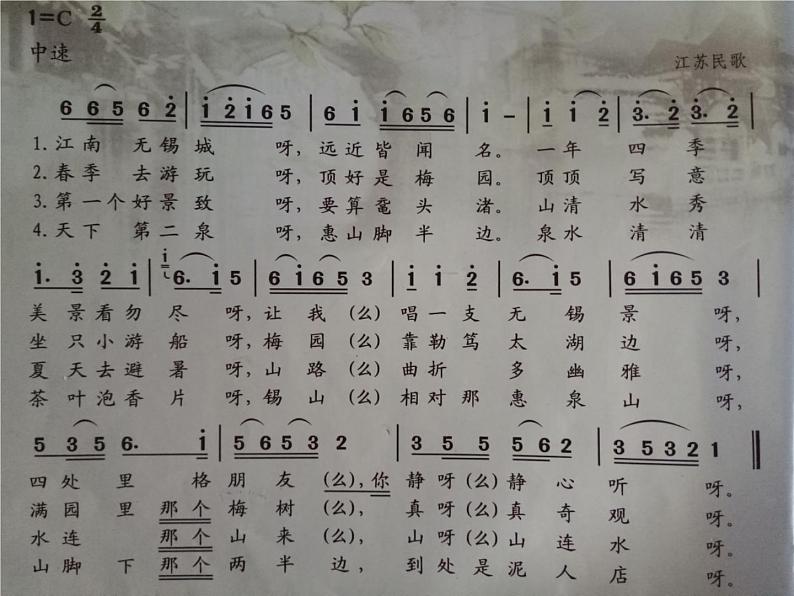 1=C 2/4
中速
江苏民歌
6 6 5 6 2 | 1 2 1 6 5 | 6 1 1 6 5 6 | 1 - | 1 1 2 | 3. 2 3. 2 |
1. 江南 无锡城 呀，远近皆 闻 名。一年 四 季
2. 春季 去游玩 呀，顶好是 梅 园。顶顶 写 意
3. 第一个好景致 呀，要算鼋 头 渚。山清 水 秀
4. 天下 第二泉 呀，惠山脚 半 边。泉水 清 清
1. 3 2 1 | 1 6. 1 5 | 6 1 6 5 3 | 1 1 2 | 6. 1 5 | 6 1 6 5 3 |
美景看勿尽 呀，让我（么）唱一支 无锡 景 呀，
坐只小游船 呀，梅园（么）靠勒笃 太湖 边 呀，
夏天去避暑 呀，山路（么）曲折 多幽 雅 呀，
茶叶泡香片 呀，锡山（么）相对那 惠泉 山 呀，
5 3 5 6. 1 | 5 6 5 3 2 | 5 3 5 5 6 2 | 3 5 3 2 1 ‖
四处里 格朋友（么），你静呀（么）静心听 呀。
满园里 那个梅树（么），真呀（么）真奇观 呀。
水连 那个山来（么），山呀（么）山连水 呀。
山脚下 那个两半边，到处是泥人店 呀。